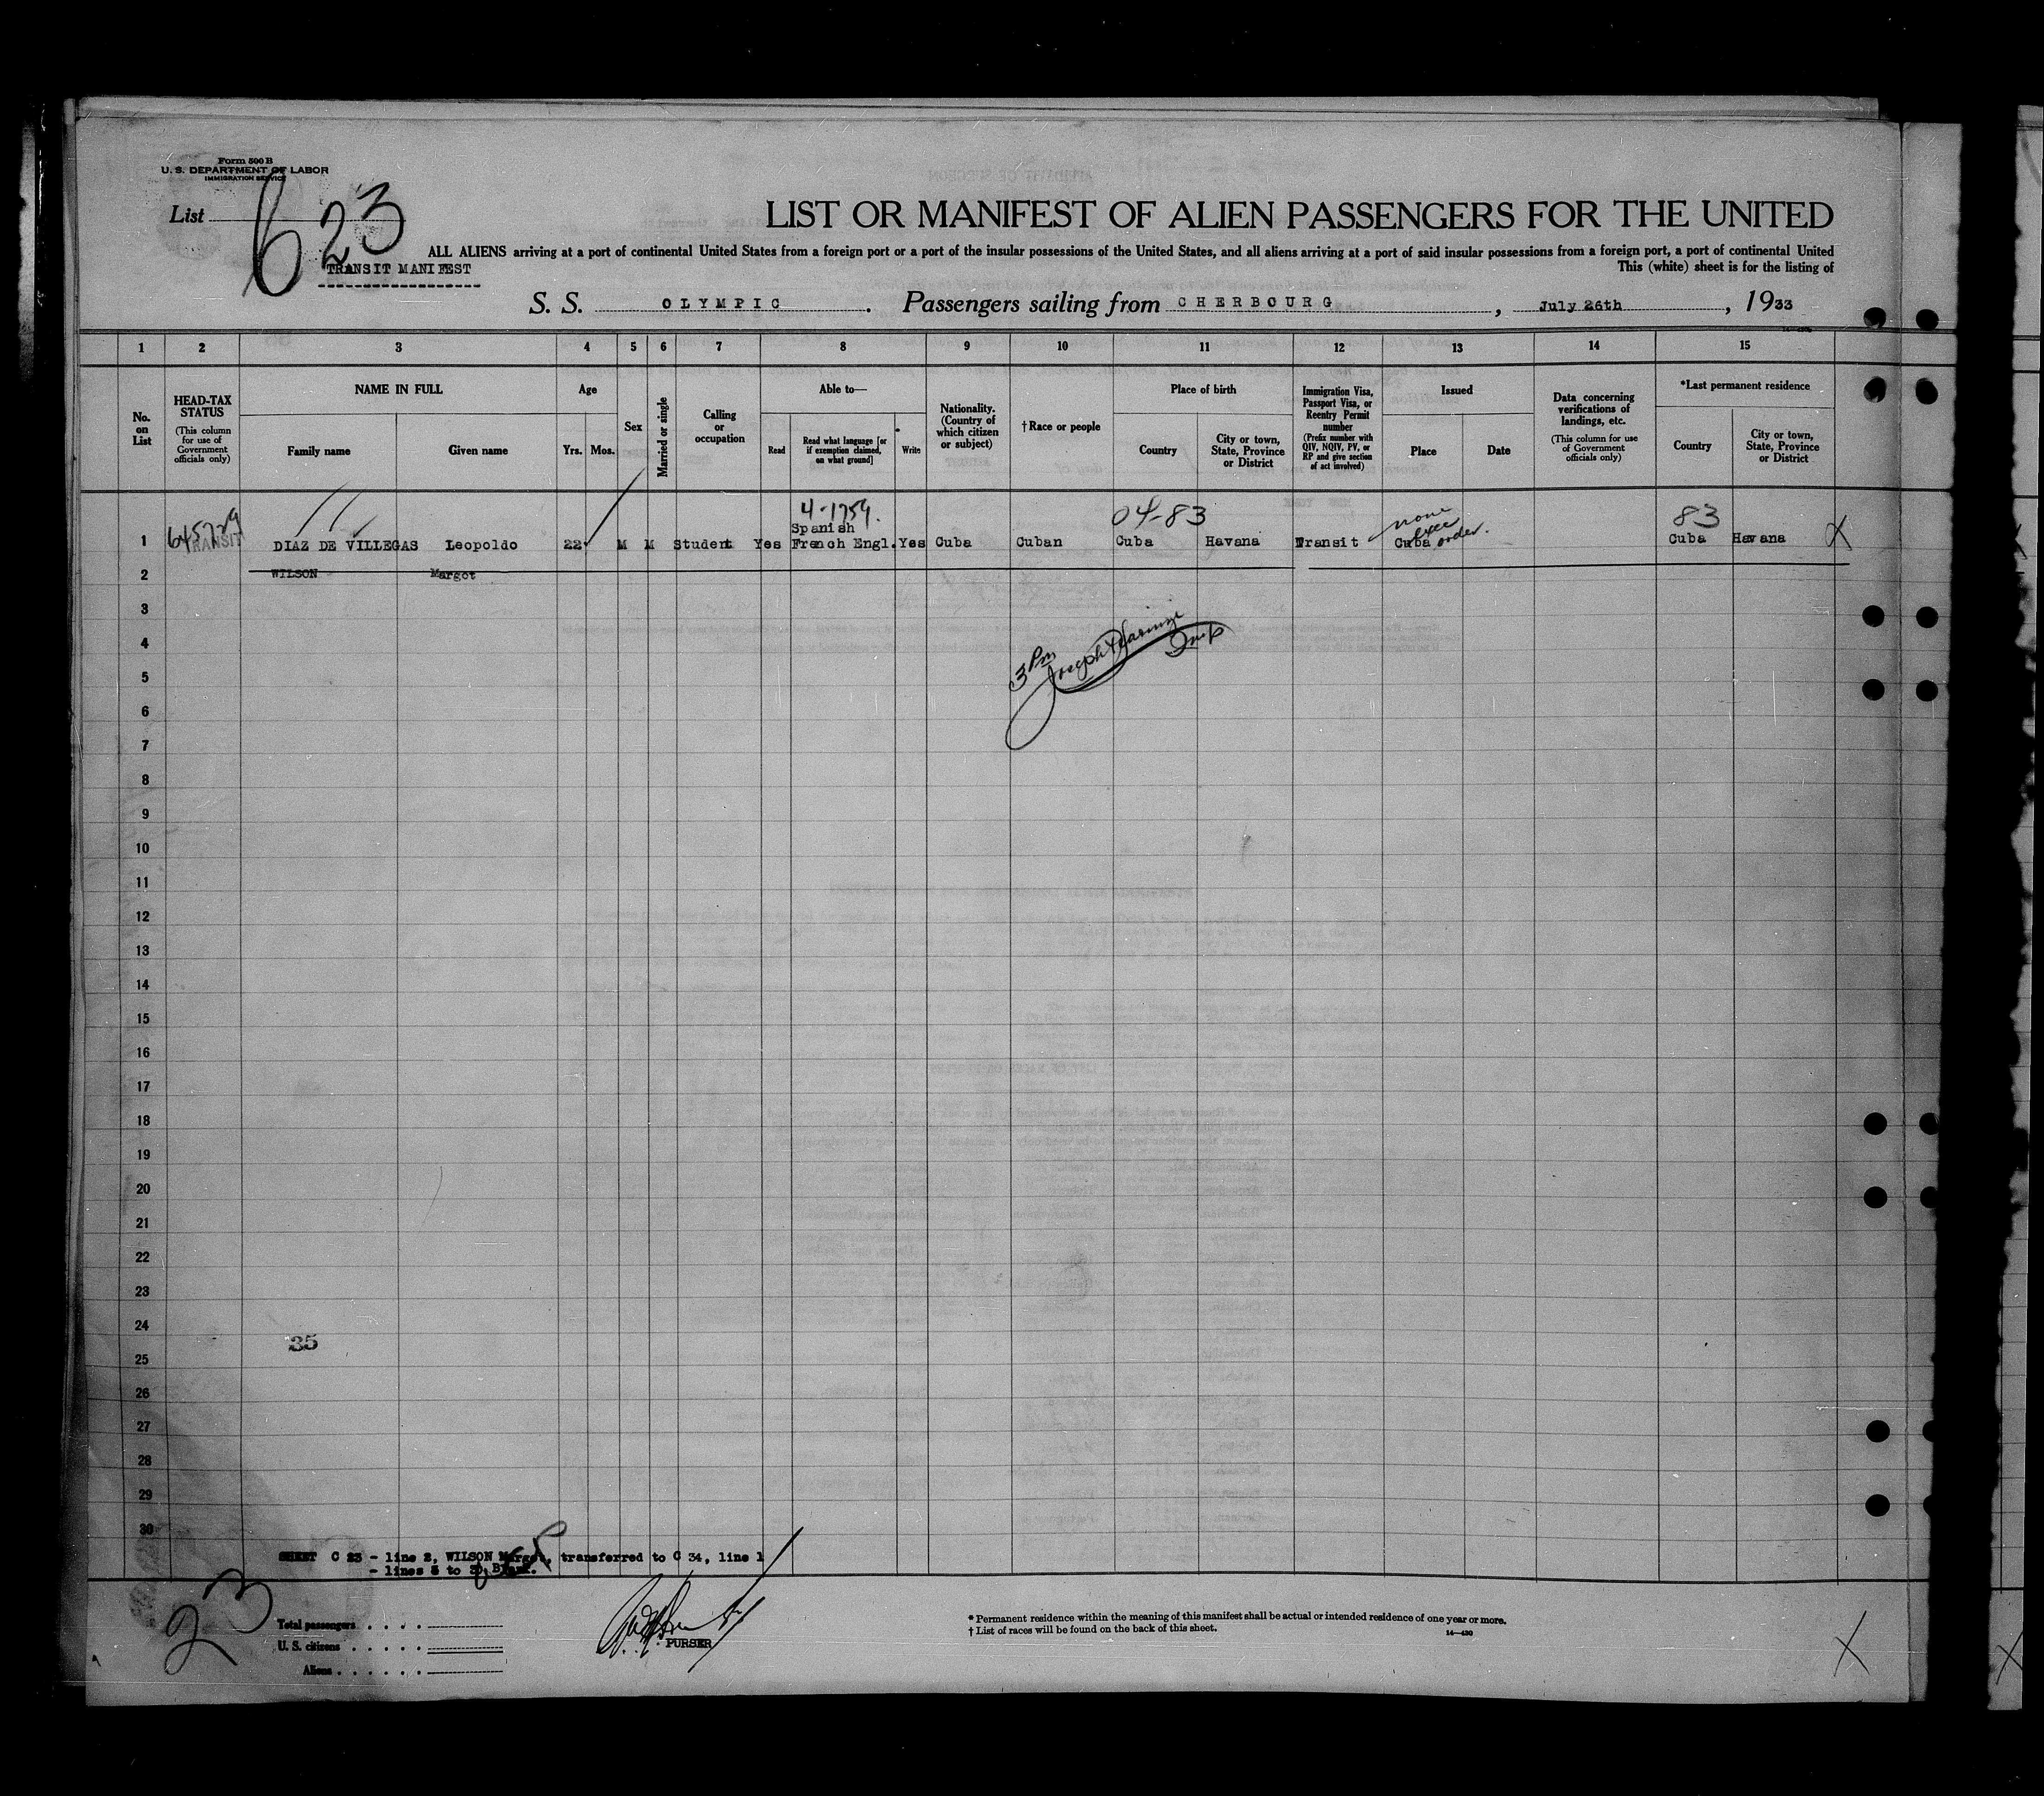 Form 500 B
U. S. DEPARTMENT OF LABOR
IMMIGRATION SERVICE
List 623
LIST OR MANIFEST OF ALIEN PASSENGERS FOR THE UNITED
ALL ALIENS arriving at a port of continental United States from a foreign port or a port of the insular possessions of the United States, and all aliens arriving at a port of said insular possessions from a foreign port, a port of continental United
TRANSIT MANIFEST
This (white) sheet is for the listing of
S. S. OLYMPIC. Passengers sailing from CHERBOURG, July 26th, 1933
1 2 3 4 5 6 7 8 9 10 11 12 13 14 15
No. on List
HEAD-TAX STATUS
(This column for use of Government officials only)
NAME IN FULL
Family name Given name
Age
Yrs. Mos.
Sex
Married or single
Calling or occupation
Able to—
Read
Read what language [or if exemption claimed, on what ground]
Write
Nationality. (Country of which citizen or subject)
†Race or people
Place of birth
Country
City or town, State, Province or District
Immigration Visa, Passport Visa, or Reentry Permit number
(Prefix number with QIV, NQIV, PV, or RP and give section of act involved)
Issued
Place Date
Data concerning verifications of landings, etc.
(This column for use of Government officials only)
*Last permanent residence
Country
City or town, State, Province or District
4-1759. 04-83 none 83
Spanish exec
1 645729 TRANSIT DIAZ DE VILLEGAS Leopoldo 22 M M Student Yes French Engl. Yes Cuba Cuban Cuba Havana Transit Cuba order. Cuba Havana X
2 WILSON Margot
3
4
3 Pm Joseph Insp
5
6
7
8
9
10
11
12
13
14
15
16
17
18
19
20
21
22
23
24
35
25
26
27
28
29
30
SHEET C 23 - line 2, WILSON Margot, transferred to C 34, line 1
- lines 3 to 30 Blank.
23
Total passengers . . . .
U. S. citizens . . . . .
Aliens . . . . . .
PURSER
* Permanent residence within the meaning of this manifest shall be actual or intended residence of one year or more.
† List of races will be found on the back of this sheet.
14—430
X